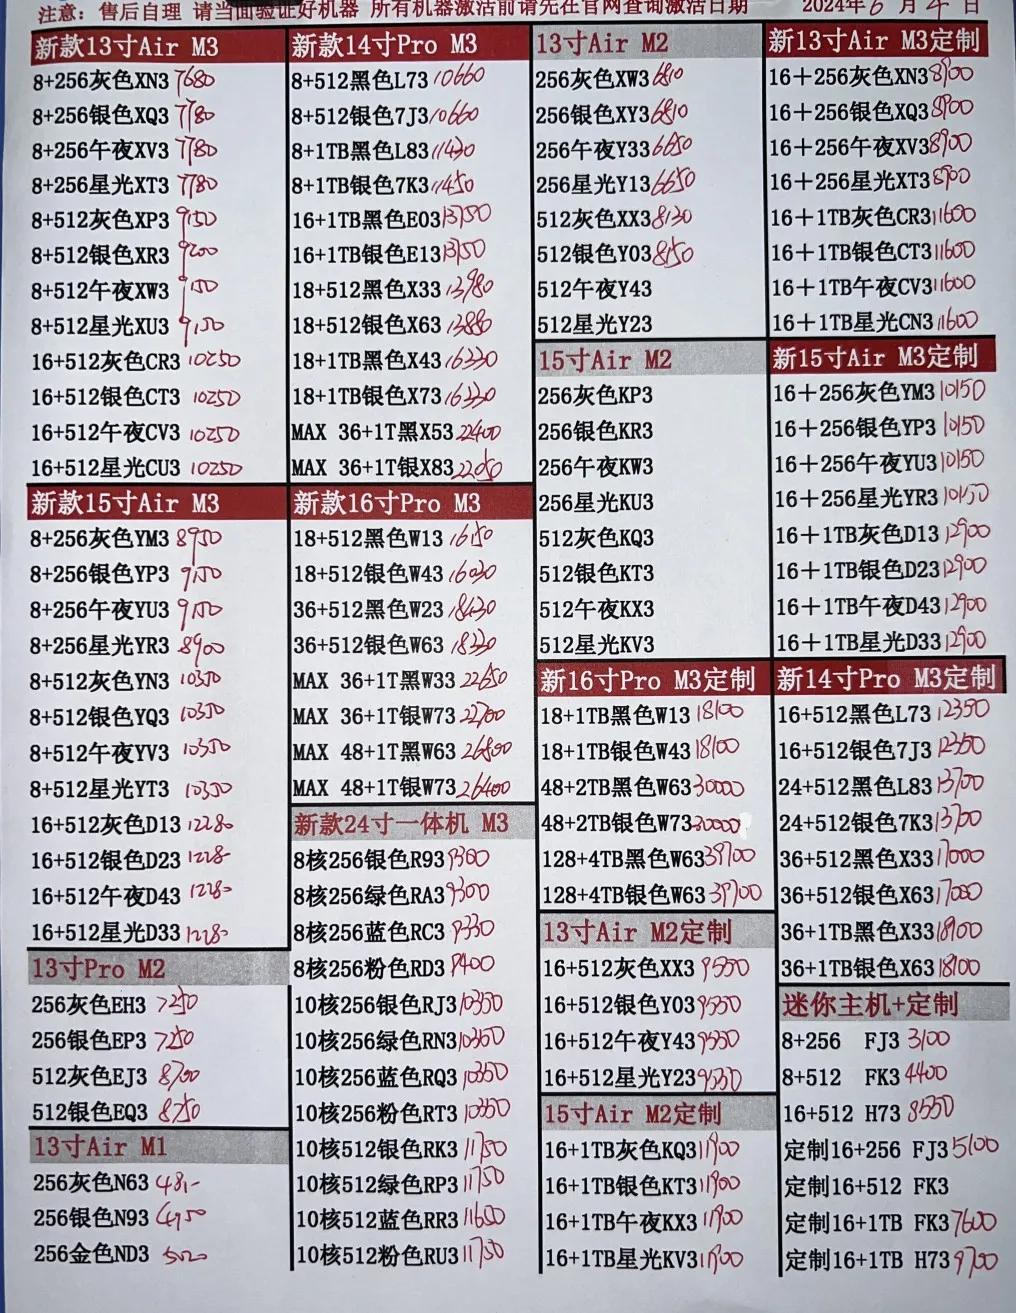 注意：售后自理 请当面验证好机器 所有机器激活前请先在官网查询激活日期 2024年6月4日
新款13寸Air M3
8+256灰色XN3 7680
8+256银色XQ3 7780
8+256午夜XV3 7780
8+256星光XT3 7780
8+512灰色XP3 9150
8+512银色XR3 9200
8+512午夜XW3 9150
8+512星光XU3 9150
16+512灰色CR3 10250
16+512银色CT3 10250
16+512午夜CV3 10250
16+512星光CU3 10250
新款15寸Air M3
8+256灰色YM3 8950
8+256银色YP3 9150
8+256午夜YU3 9150
8+256星光YR3 8900
8+512灰色YN3 10350
8+512银色YQ3 10350
8+512午夜YV3 10350
8+512星光YT3 10350
16+512灰色D13 12280
16+512银色D23 1228-
16+512午夜D43 1228-
16+512星光D33 1228-
13寸Pro M2
256灰色EH3 7250
256银色EP3 7250
512灰色EJ3 8700
512银色EQ3 8750
13寸Air M1
256灰色N63 481-
256银色N93 4950
256金色ND3 5020
新款14寸Pro M3
8+512黑色L73 10660
8+512银色7J3 10660
8+1TB黑色L83 11430
8+1TB银色7K3 11450
16+1TB黑色E03 13150
16+1TB银色E13 13150
18+512黑色X33 13980
18+512银色X63 13880
18+1TB黑色X43 16330
18+1TB银色X73 16330
MAX 36+1T黑X53 22400
MAX 36+1T银X83 22050
新款16寸Pro M3
18+512黑色W13 16150
18+512银色W43 16030
36+512黑色W23 18630
36+512银色W63 18330
MAX 36+1T黑W33 22650
MAX 36+1T银W73 22700
MAX 48+1T黑W63 26800
MAX 48+1T银W73 26400
新款24寸一体机 M3
8核256银色R93 9300
8核256绿色RA3 9300
8核256蓝色RC3 9330
8核256粉色RD3 9400
10核256银色RJ3 10350
10核256绿色RN3 10350
10核256蓝色RQ3 10350
10核256粉色RT3 10350
10核512银色RK3 11750
10核512绿色RP3 11750
10核512蓝色RR3 11650
10核512粉色RU3 11750
13寸Air M2
256灰色XW3 6810
256银色XY3 6810
256午夜Y33 6650
256星光Y13 6650
512灰色XX3 8130
512银色Y03 8150
512午夜Y43
512星光Y23
15寸Air M2
256灰色KP3
256银色KR3
256午夜KW3
256星光KU3
512灰色KQ3
512银色KT3
512午夜KX3
512星光KV3
新16寸Pro M3定制
18+1TB黑色W13 18100
18+1TB银色W43 18100
48+2TB黑色W63 30000
48+2TB银色W73 30000
128+4TB黑色W63 39700
128+4TB银色W63 39700
13寸Air M2定制
16+512灰色XX3 9550
16+512银色Y03 9550
16+512午夜Y43 9550
16+512星光Y23 9550
15寸Air M2定制
16+1TB灰色KQ3 11900
16+1TB银色KT3 11900
16+1TB午夜KX3 11900
16+1TB星光KV3 11900
新13寸Air M3定制
16+256灰色XN3 8900
16+256银色XQ3 8900
16+256午夜XV3 8900
16+256星光XT3 8900
16+1TB灰色CR3 11600
16+1TB银色CT3 11600
16+1TB午夜CV3 11600
16+1TB星光CN3 11600
新15寸Air M3定制
16+256灰色YM3 10150
16+256银色YP3 10150
16+256午夜YU3 10150
16+256星光YR3 10150
16+1TB灰色D13 12900
16+1TB银色D23 12900
16+1TB午夜D43 12900
16+1TB星光D33 12900
新14寸Pro M3定制
16+512黑色L73 12350
16+512银色7J3 12350
24+512黑色L83 13700
24+512银色7K3 13700
36+512黑色X33 17000
36+512银色X63 17000
36+1TB黑色X33 18100
36+1TB银色X63 18100
迷你主机+定制
8+256 FJ3 3100
8+512 FK3 4400
16+512 H73 8550
定制16+256 FJ3 5100
定制16+512 FK3
定制16+1TB FK3 7600
定制16+1TB H73 9700